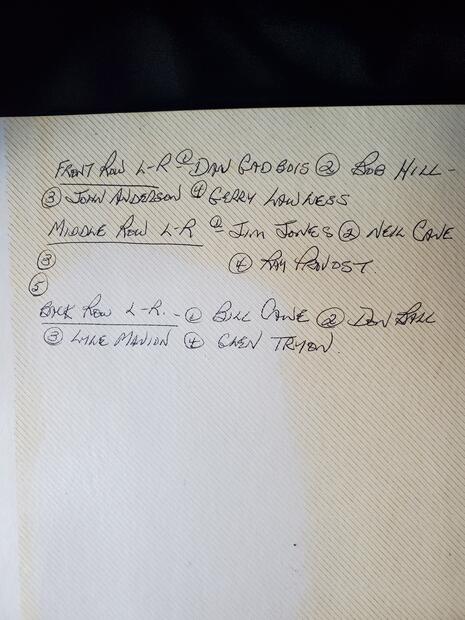 FRONT ROW L-R ① DAN GADBOIS ② BOB HILL -
③ JOHN ANDERSON ④ GERRY LAWLESS
MIDDLE ROW L-R ① JIM JONES ② NEIL CANE
③ ④ RAY PROVOST.
⑤
BACK ROW L-R. - ① BILL CANE ② DON BALL
③ LYLE MANION ④ GLEN TRYON.